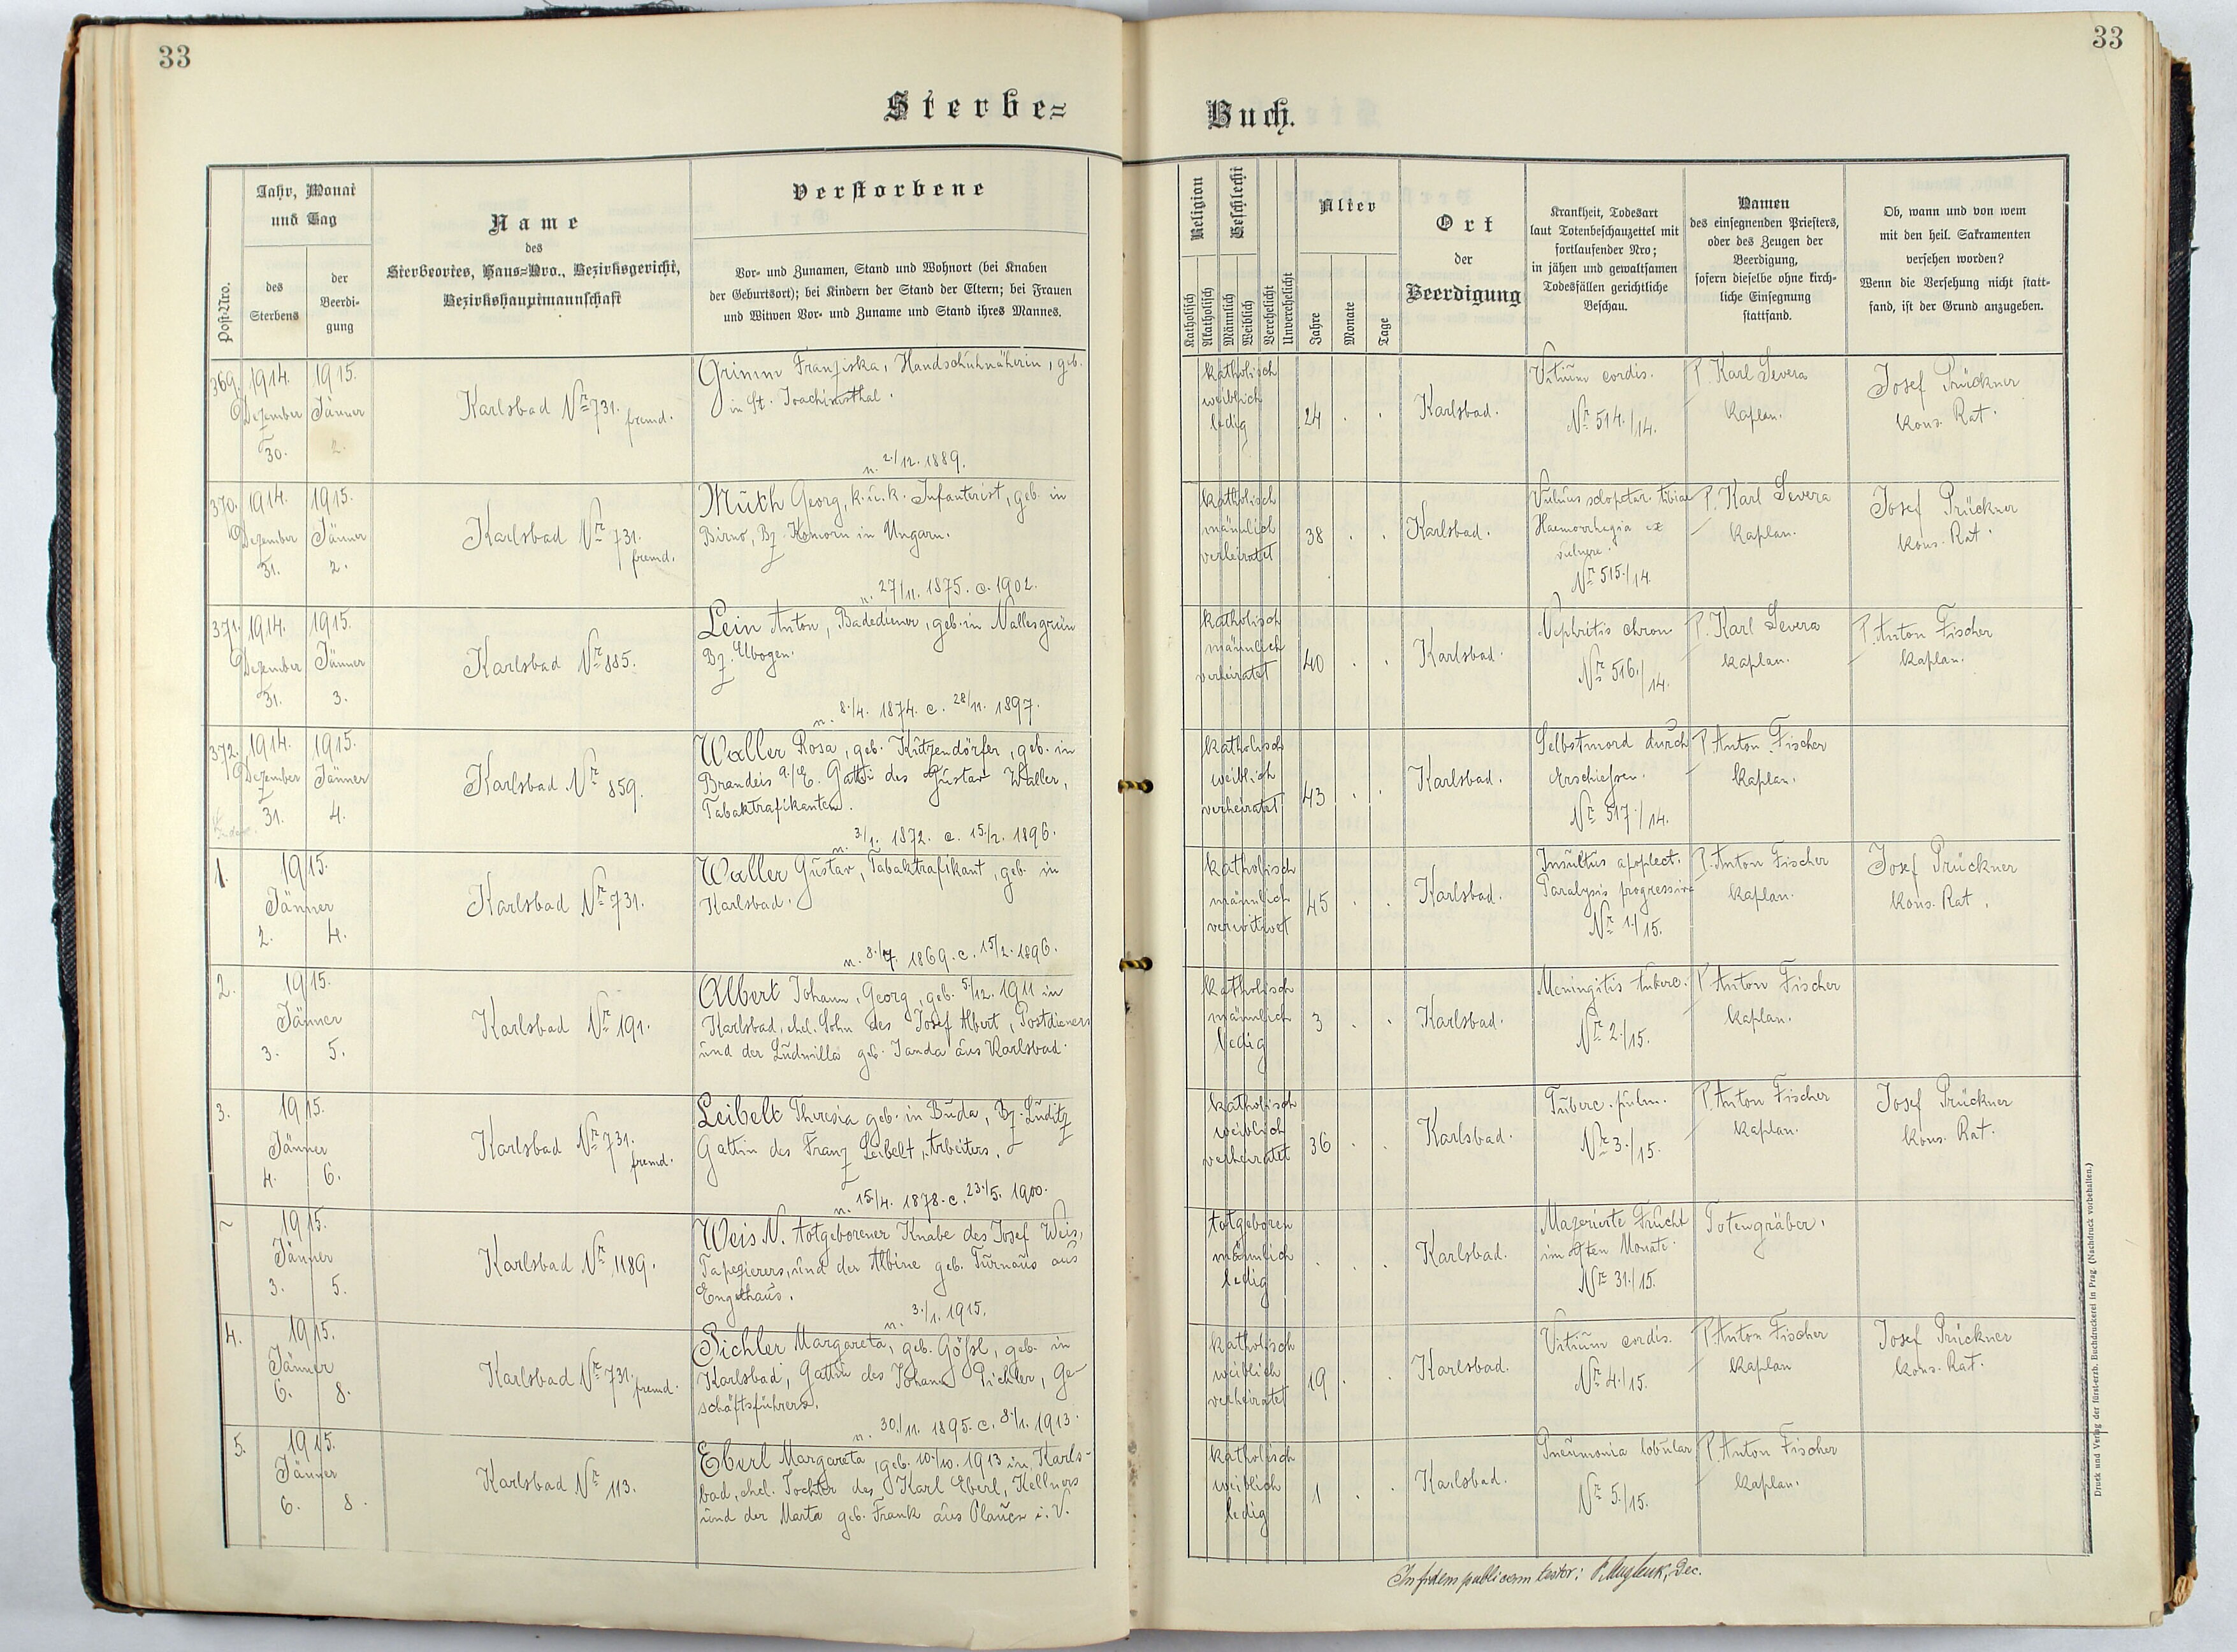 33
33
Sterbe=
Buch.
Post-Nro.
Jahr, Monat
und Tag
des
Sterbens
der
Beerdi-
gung
Name
des
Sterbeortes, Haus=Nro., Bezirksgericht,
Bezirkshauptmannschaft
Verstorbene
Vor- und Zunamen, Stand und Wohnort (bei Knaben
der Geburtsort); bei Kindern der Stand der Eltern; bei Frauen
und Witwen Vor- und Zuname und Stand ihres Mannes.
Religion
Katholisch
Akatholisch
Geschlecht
Männlich
Weiblich
Verehelicht
Unverehelicht
Alter
Jahre
Monate
Tage
Ort
der
Beerdigung
Krankheit, Todesart
laut Totenbeschauzettel mit
fortlaufender Nro;
in jähen und gewaltsamen
Todesfällen gerichtliche
Beschau.
Namen
des einsegnenden Priesters,
oder des Zeugen der
Beerdigung,
sofern dieselbe ohne kirch-
liche Einsegnung
stattfand.
Ob, wann und von wem
mit den heil. Sakramenten
versehen worden?
Wenn die Versehung nicht statt-
fand, ist der Grund anzugeben.
369. 1914. 1915.
Dezember Jänner
30. 2.
Karlsbad Nr 731. fremd.
Grimm Franziska, Handschuhnäherin, geb.
in St. Joachimsthal.
n. 2./12. 1889.
katholisch
weiblich
ledig
24 . .
Karlsbad.
Vitium cordis.
Nr 514./14.
P. Karl Severa
Kaplan.
Josef Prückner
Kons. Rat.
370. 1914. 1915.
Dezember Jänner
31. 2.
Karlsbad Nr 731.
fremd.
Muth Georg, k. u. k. Infanterist, geb. in
Birno, Bz. Komorn in Ungarn.
n. 27/11. 1875. c. 1902.
katholisch
männlich
verheiratet
38 . .
Karlsbad.
Vulnus sclopetar. tibiae
Haemorrhagia ex
vulnere.
Nr 515./14.
P. Karl Severa
Kaplan.
Josef Prückner
Kons. Rat.
371. 1914. 1915.
Dezember Jänner
31. 3.
Karlsbad Nr 885.
Lein Anton, Badediener, geb. in Nallesgrün
Bz. Elbogen.
n. 8./4. 1874. c. 28/11. 1897.
katholisch
männlich
verheiratet
40 . .
Karlsbad.
Nephritis chron
Nr 516./14.
P. Karl Severa
Kaplan.
P. Anton Fischer
Kaplan.
372. 1914. 1915.
Dezember Jänner
31. 4.
Karlsbad Nr 859.
Waller Rosa, geb. Kützendörfer, geb. in
Brandeis a./E. Gattin des Gustav Waller,
Tabaktrafikanten.
n. 3./1. 1872. c. 15./2. 1896.
katholisch
weiblich
verheiratet
43 . .
Karlsbad.
Selbstmord durch
Erschießen.
Nr 517./14.
P. Anton Fischer
Kaplan.
1. 1915.
Jänner
2. 4.
Karlsbad Nr 731.
Waller Gustav, Tabaktrafikant, geb. in
Karlsbad.
n. 8./7. 1869. c. 15/2. 1896.
katholisch
männlich
verwitwet
45 . .
Karlsbad.
Insultus apoplect.
Paralysis progressiva
Nr 1./15.
P. Anton Fischer
Kaplan.
Josef Prückner
Kons. Rat.
2. 1915.
Jänner
3. 5.
Karlsbad Nr 191.
Albert Johann, Georg, geb. 5/12. 1911 in
Karlsbad, ehel. Sohn des Josef Albert, Postdieners
und der Ludmilla geb. Janda aus Karlsbad.
katholisch
männlich
ledig
3 . .
Karlsbad.
Meningitis tuberc.
Nr 2./15.
P. Anton Fischer
Kaplan.
3. 1915.
Jänner
4. 6.
Karlsbad Nr 731.
fremd.
Leibelt Theresia geb. in Buda, Bz. Luditz
Gattin des Franz Leibelt, Arbeiters.
n. 15./4. 1878. c. 23./5. 1900.
katholisch
weiblich
verheiratet
36 . .
Karlsbad.
Tuberc. pulm.
Nr 3./15.
P. Anton Fischer
Kaplan.
Josef Prückner
Kons. Rat.
~ 1915.
Jänner
3. 5.
Karlsbad Nr 1189.
Weis N. totgeborener Knabe des Josef Weis,
Tapezierers, und der Albine geb. Turnaus aus
Engelhaus.
n. 3./1. 1915.
totgeboren
männlich
ledig
. . .
Karlsbad.
Mazerierte Frucht
im 8ten Monate.
Nr 31./15.
Totengräber.
4. 1915.
Jänner
6. 8.
Karlsbad Nr 731. fremd.
Pichler Margareta, geb. Gößl, geb. in
Karlsbad, Gattin des Johann Pichler, Ge-
schäftsführers.
n. 30./11. 1895. c. 8./1. 1913.
katholisch
weiblich
verheiratet
19 . .
Karlsbad.
Vitium cordis.
Nr 4./15.
P. Anton Fischer
Kaplan
Josef Prückner
Kons. Rat.
5. 1915.
Jänner
6. 8.
Karlsbad Nr 113.
Eberl Margareta, geb. 10./10. 1913 in Karls-
bad, ehel. Tochter des Karl Eberl, Kellners
und der Marta geb. Frank aus Plauen i. V.
katholisch
weiblich
ledig
1 . .
Karlsbad.
Pneumonia lobular
Nr 5./15.
P. Anton Fischer
Kaplan.
In fidem publicam testor:
Druck und Verlag der fürst-erzb. Buchdruckerei in Prag. (Nachdruck vorbehalten.)